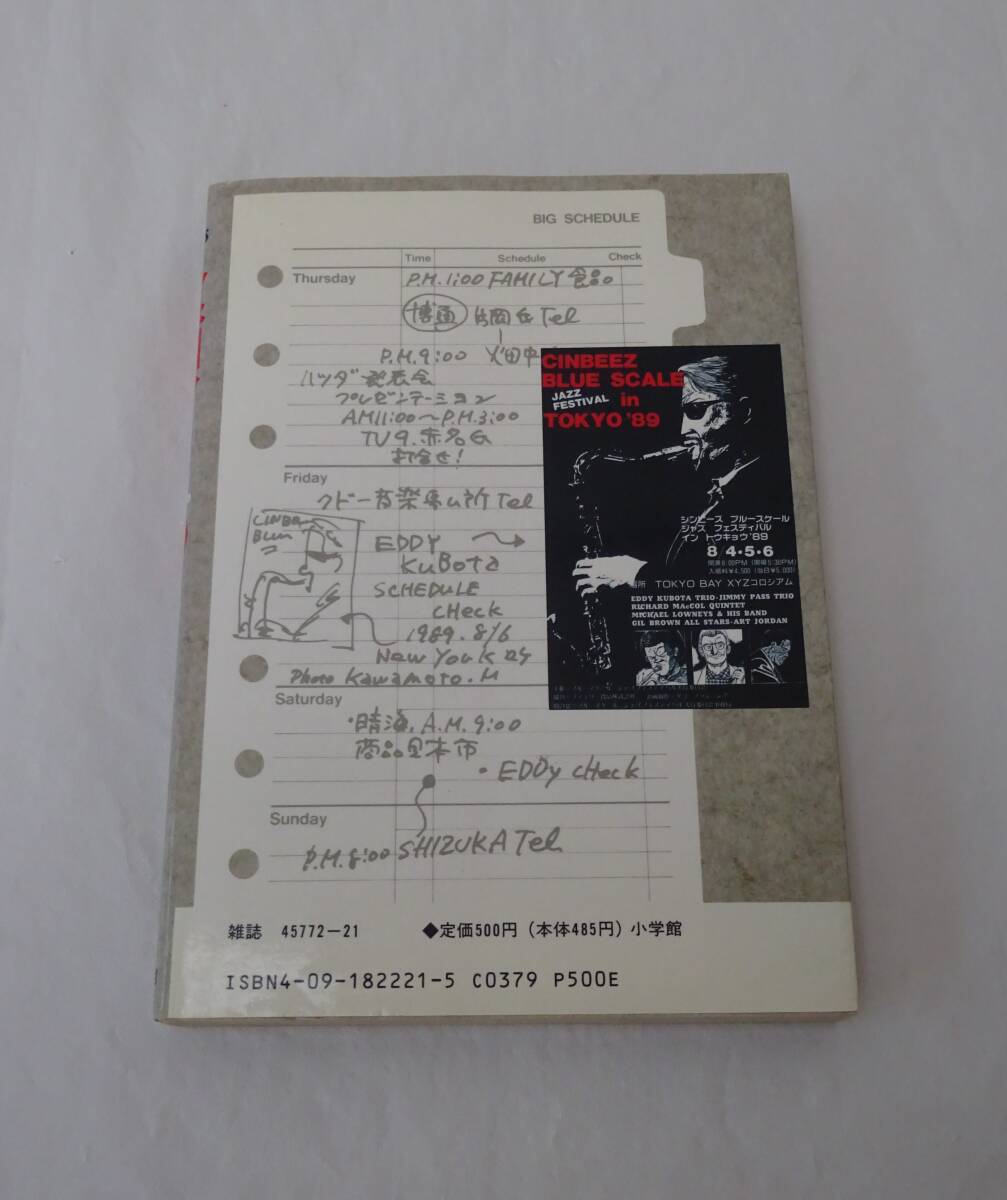 BIG SCHEDULE
Time Schedule Check
Thursday P.M.1:00 FAMILY 食品
博通 片岡氏Tel
P.M.9:00
ハツダ発表会
プレゼンテーション
AM11:00〜P.M.3:00
TV9.赤名氏
打合せ!
Friday
クドー音楽事ム所Tel
EDDY
KuBota
SCHEDULE
CHeck
1989.8/6
New Youk
Photo Kawamoto.M
CINBEEZ
BLUE SCALE
JAZZ FESTIVAL in
TOKYO '89
シンビーズ ブルースケール
ジャズ フェスティバル
イン トウキョウ'89
8/4・5・6
開演6:00PM (開場5:30PM)
入場料¥4,500 (当日¥5,000)
場所 TOKYO BAY XYZコロシアム
EDDY KUBOTA TRIO-JIMMY PASS TRIO
RICHARD MACCOL QUINTET
MICHAEL LOWNEYS & HIS BAND
GIL BROWN ALL STARS-ART JORDAN
Saturday
・晴海.A.M.9:00
商品見本市
・EDDy cHeck
Sunday
P.M.8:00 SHIZUKA Tel
雑誌 45772-21 ◆定価500円(本体485円)小学館
ISBN4-09-182221-5 C0379 P500E